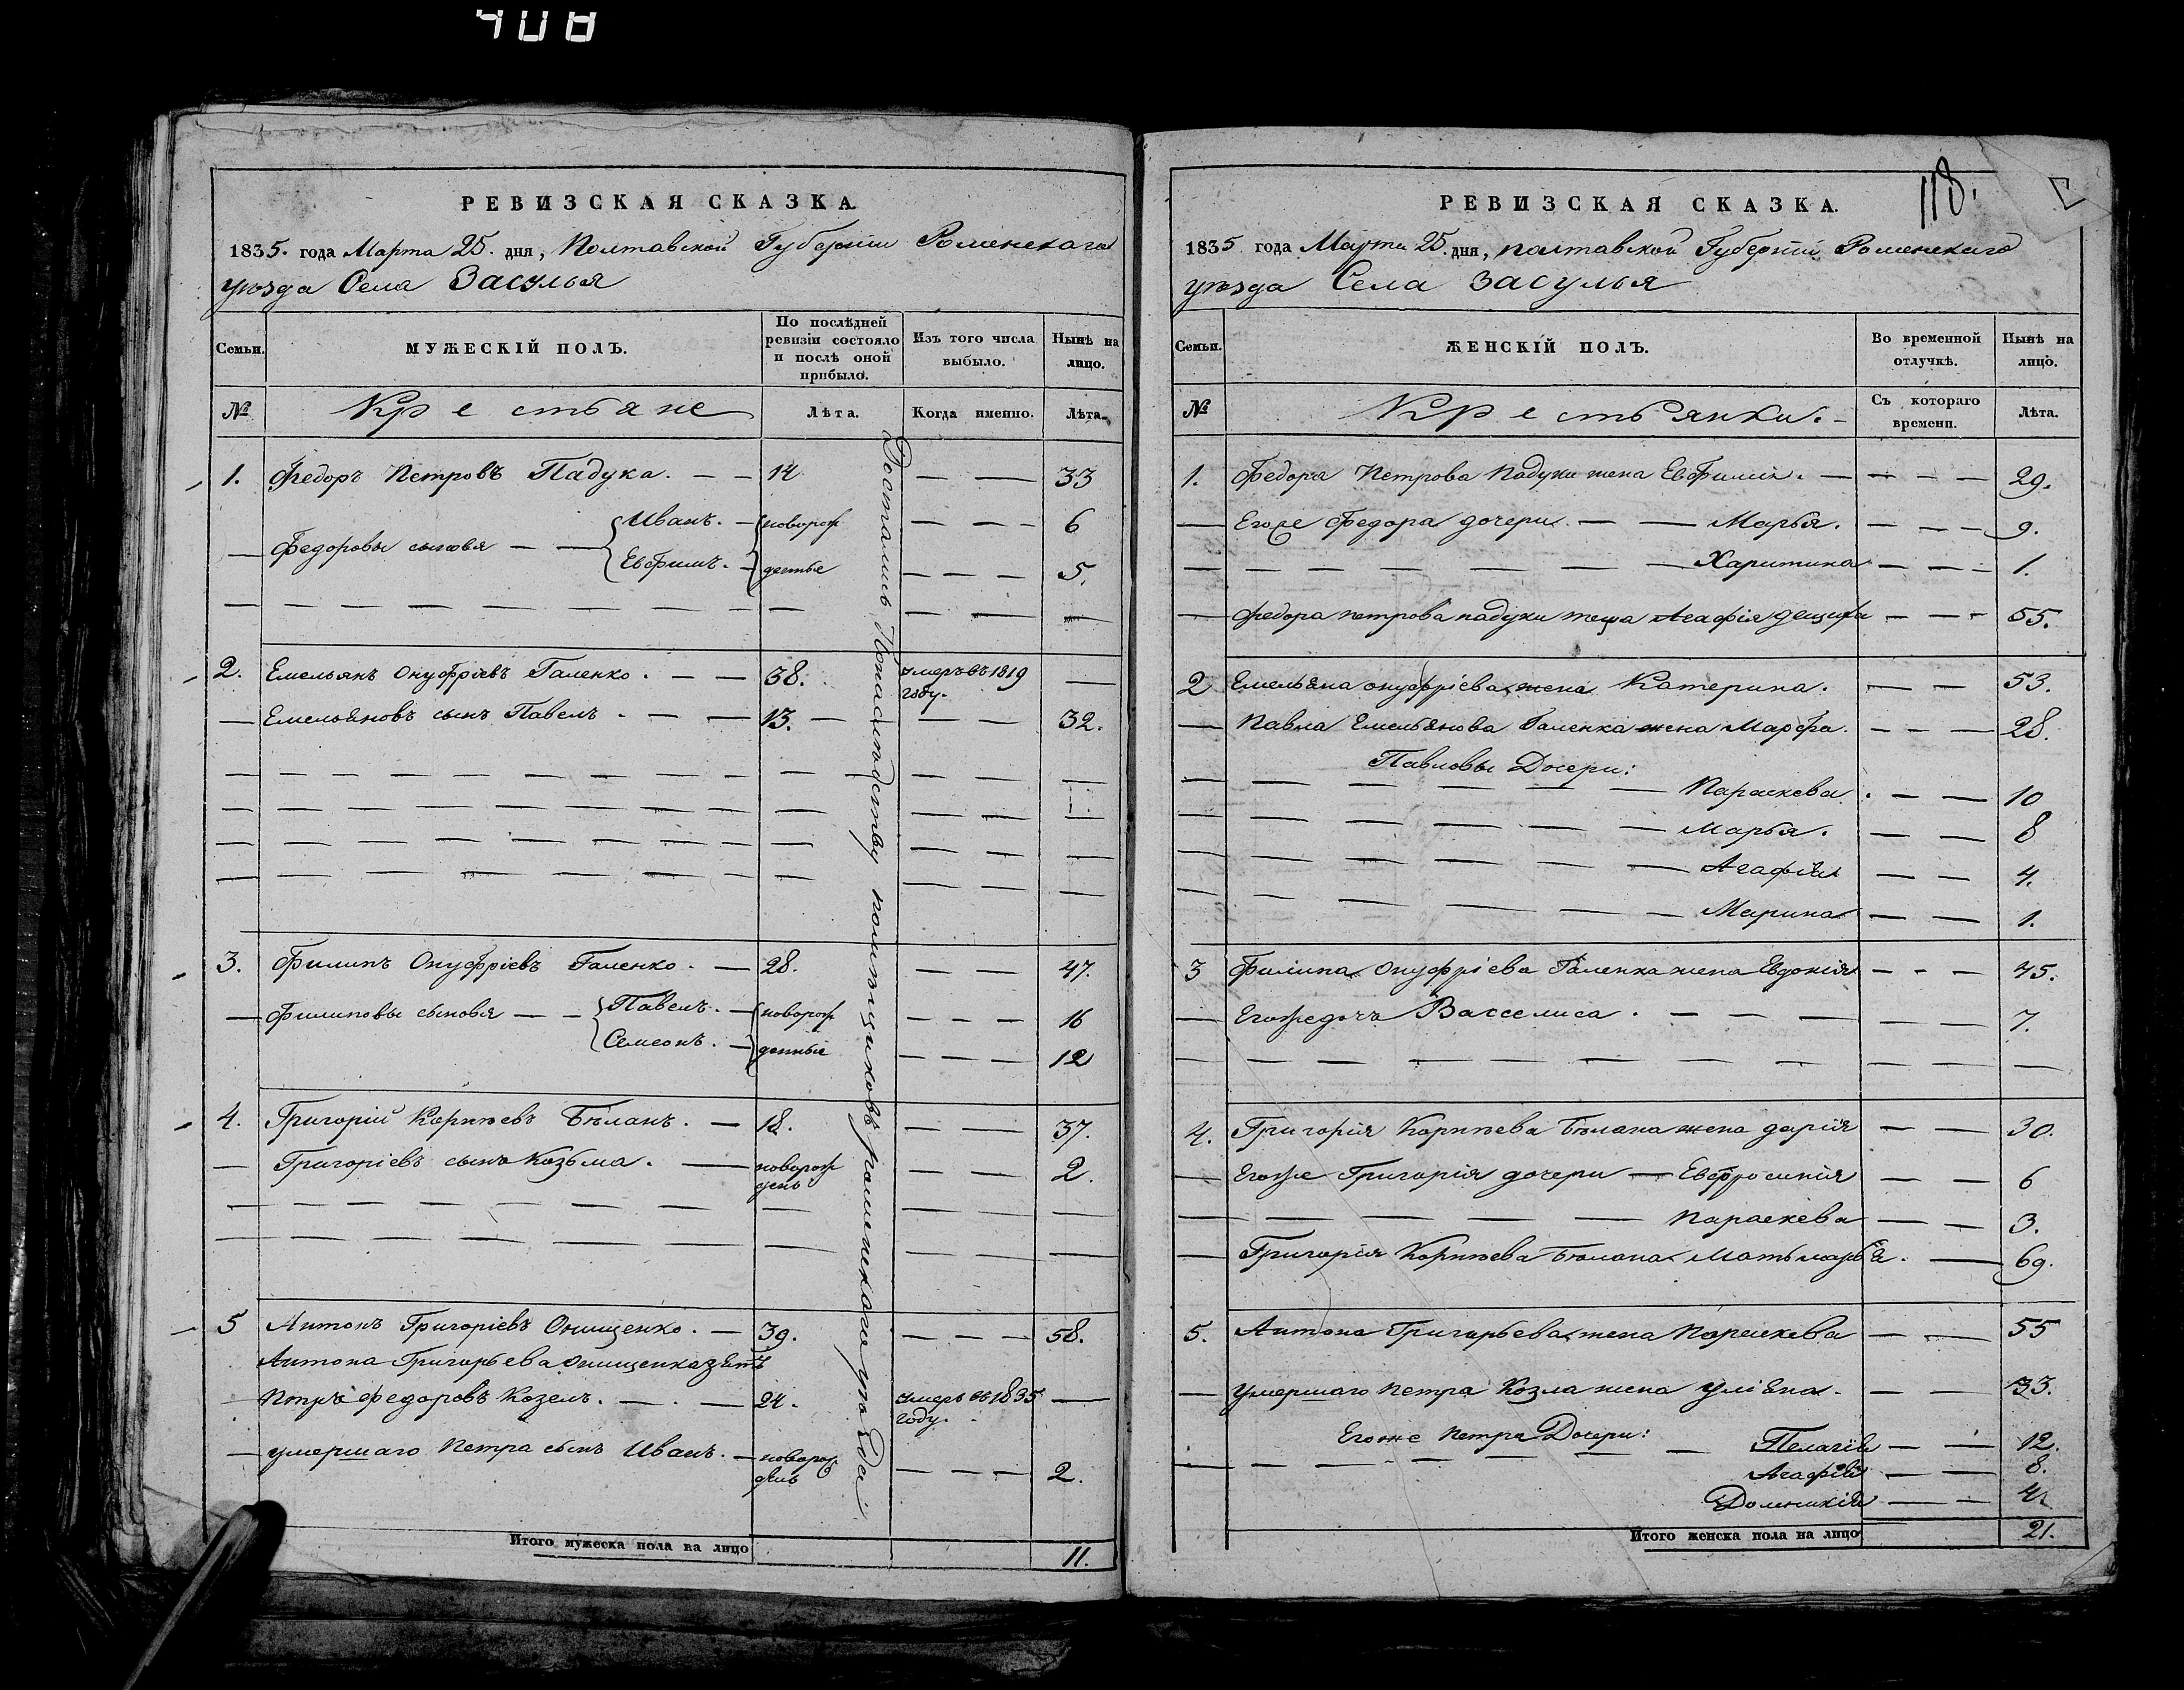 408
РЕВИЗСКАЯ СКАЗКА.
1835. года Марта 25. дня, Полтавской Губернии Роменскаго
уѣзда Села Засулья
Семьи.
МУЖЕСКІЙ ПОЛЪ.
По послѣдней ревизіи состояло и послѣ оной прибыло.
Изъ того числа выбыло.
Нынѣ на лицо.
№ Крестьяне Лѣта. Когда именно. Лѣта.
Достались по наслѣдству помѣщиковъ роменскаго уѣзда
1. Федоръ Петровъ Падука. — — 14 — — 33
Иванъ. — новорож — — — 6
— Федоровы сыновья — —
Евфимъ. — денные — — — 5.
2. Емельянъ Онуфріевъ Галенко. — — 38. умеръ въ 1819 году. —
— Емельяновъ сынъ Павелъ. — — 13. — — — 32.
3. Филипъ Онуфріевъ Галенко. — 28. — — 47.
— Филиповы сыновья — — Павелъ. — новорож — — — 16
Семеонъ. — денные — — — 12
4. Григорій Корнѣевъ Бѣланъ. — 18. — — 37.
— Григоріевъ сынъ Козьма. — новорож денъ — — 2.
5 Антонъ Григоріевъ Онищенко. — 39. — — — 58.
Антона Григорьева Онищенка зять
Петръ Федоровъ Козелъ. — . — 24. умеръ въ 1835 году. —
— умершаго Петра сынъ Иванъ. — новорож денъ — — — 2.
Итого мужеска пола на лицо 11.
118.
РЕВИЗСКАЯ СКАЗКА.
1835 года Марта 25. дня, полтавской Губерніи Роменскаго
уѣзда Села Засулья
Семьи.
ЖЕНСКІЙ ПОЛЪ.
Во временной отлучкѣ.
Нынѣ на лицо.
№ Крестьянки. — Съ котораго времени. Лѣта.
1. Федора Петрова Падуки жена Евфимія. — — — — 29.
— Егоже Федора дочери — — Марья. — — — 9.
Харитина — — — 1.
— Федора петрова падуки теща Агафія — — — 55.
2 Емельяна онуфріева жена Катерина. — — 53.
— Павла Емельянова Галенка жена Марфа. — — — 28.
Павловы Дочери:
Параскева. — — 10
Марья. — — 8
Агафія — — 4.
Марина — — 1.
3 Филипа Онуфріева Галенка жена Евдокія — — — 45.
— Егоже дочь Васселиса. — — — — — 7.
4. Григорія Корнѣева Бѣлана жена дарія — — 30.
— Егоже Григорія дочери — Евфросинія — — 6
Параскева — — 3.
— Григорія Корнѣева Бѣлана Мать марья. — 69.
5. Антона Григорьева жена Параскева — — 55
— умершаго петра Козла жена уліяна. — — 33.
Егоже Петра Дочери:
Пелагія — — 12.
Агафія — — 8.
Доминикія — — 4.
Итого женска пола на лицо 21.